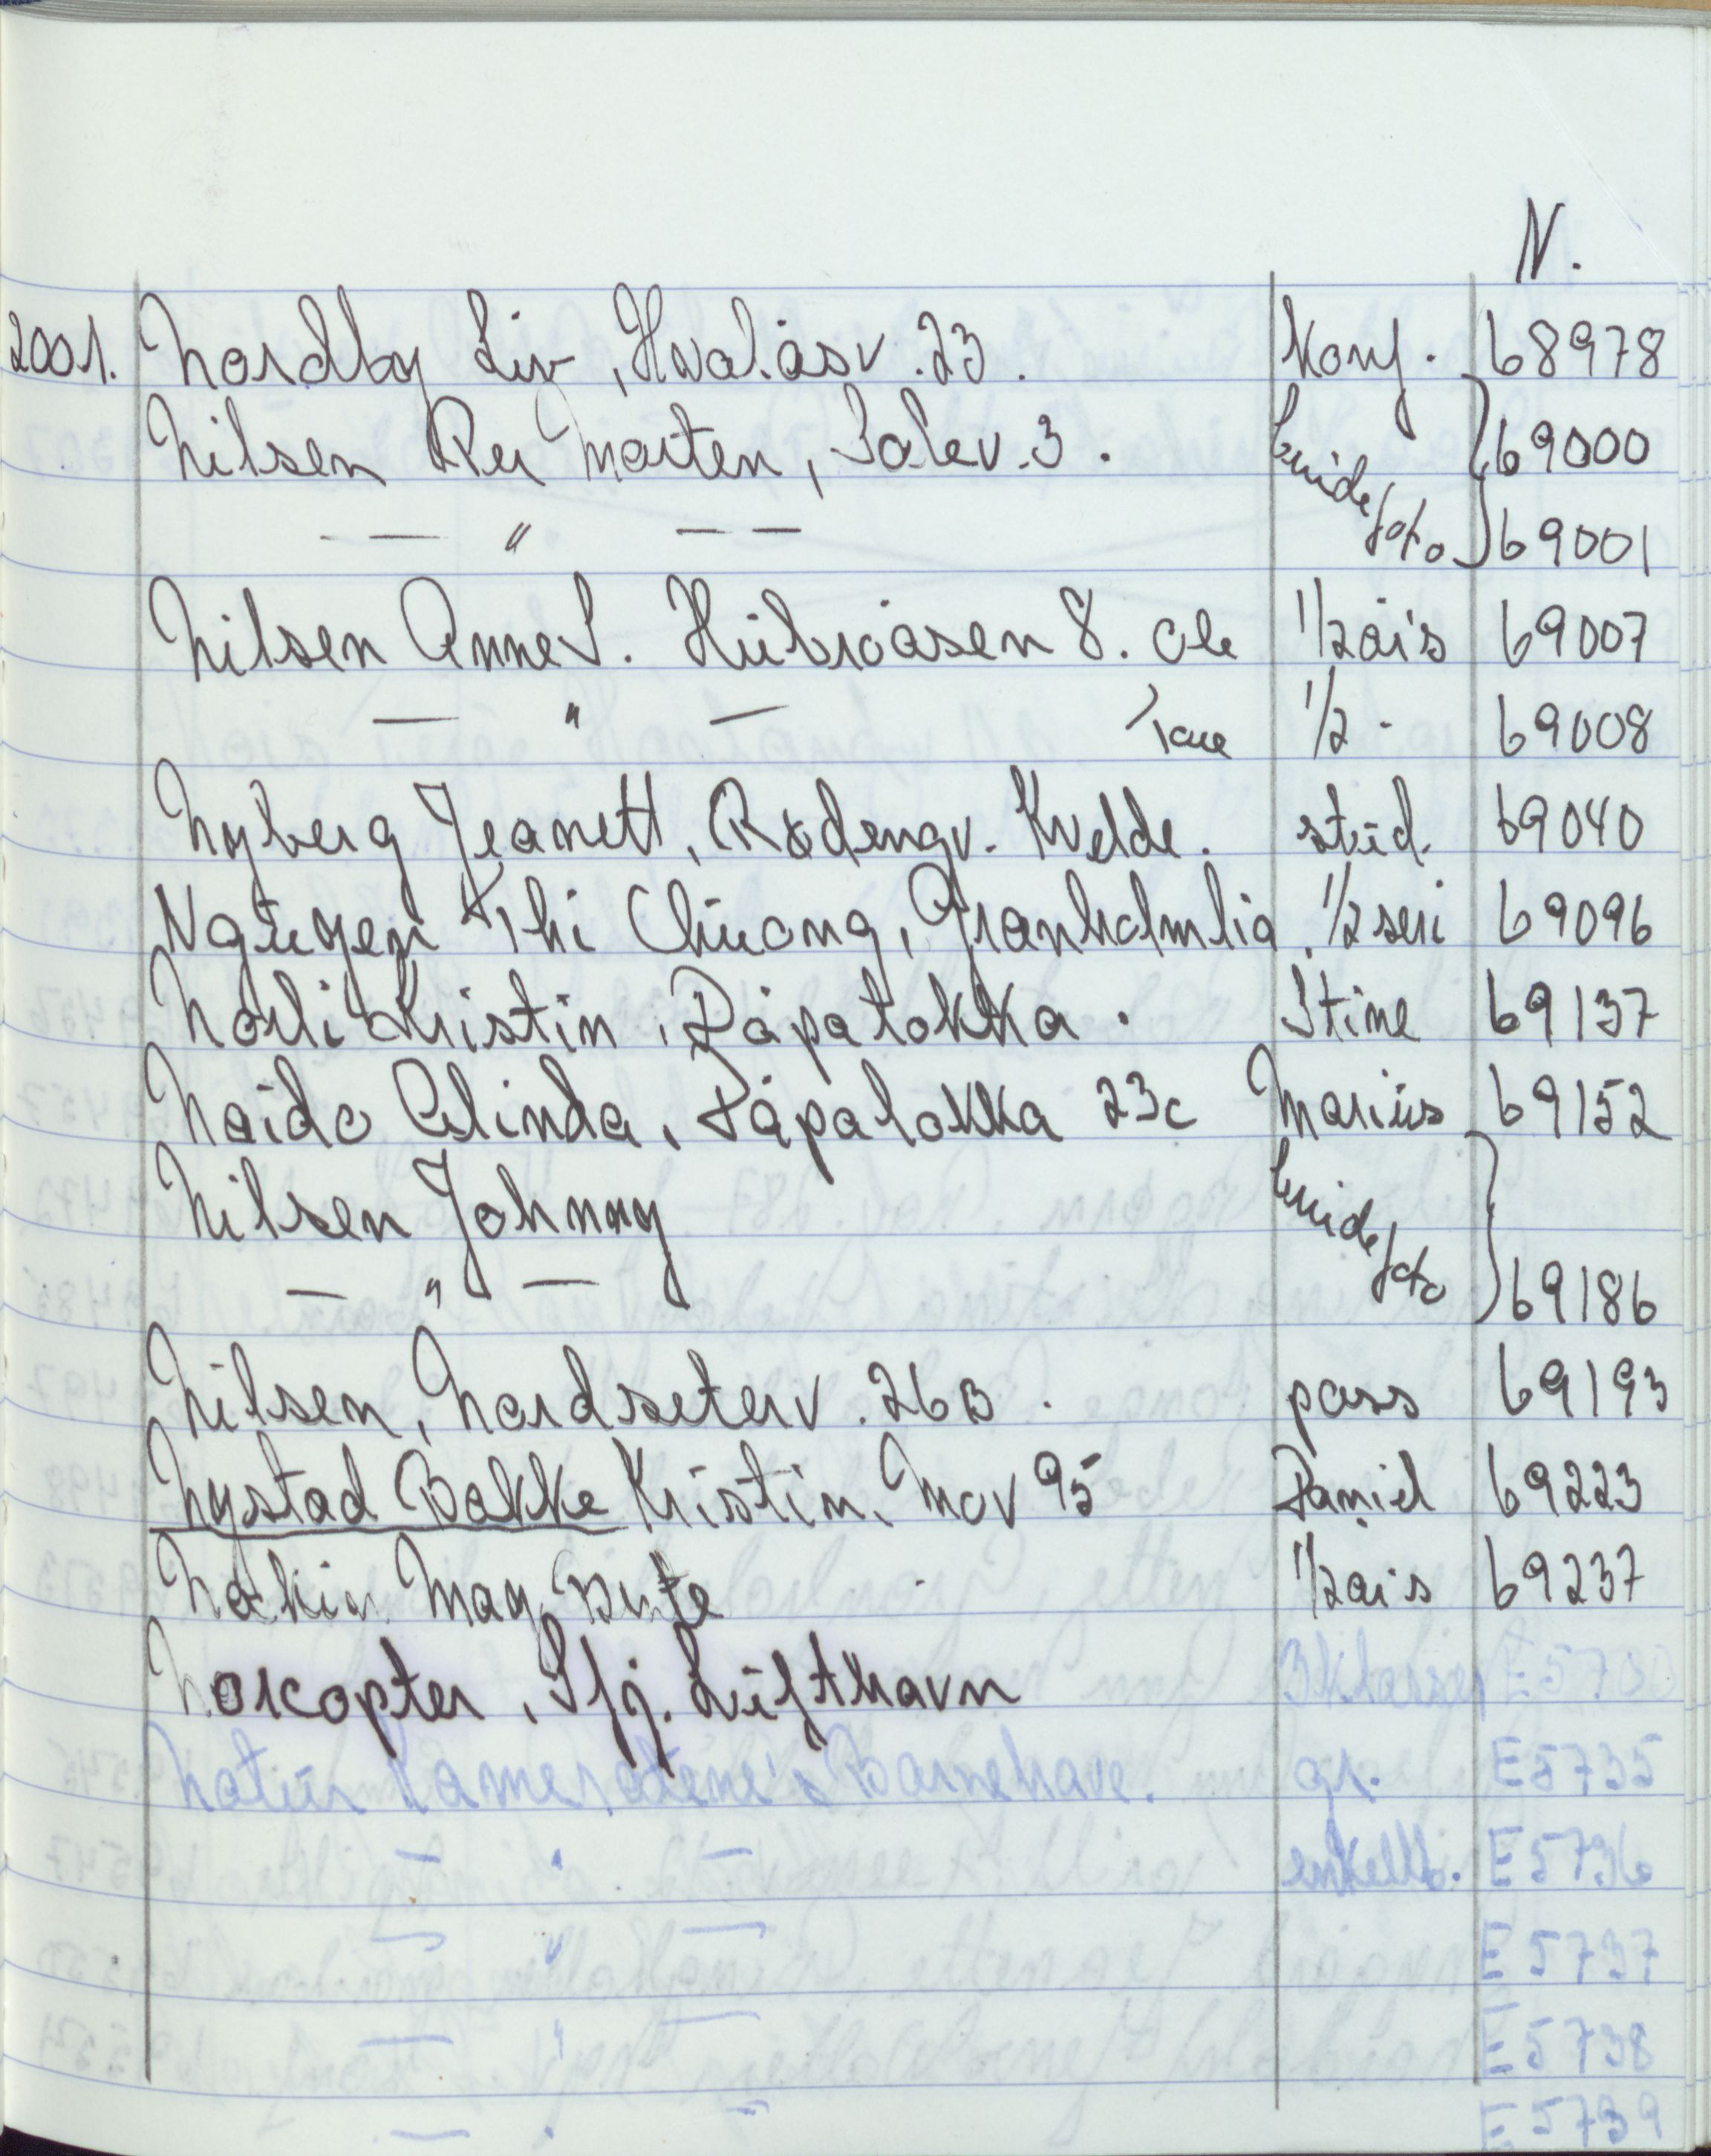 N.
2001. Nordby Liv, Hvalåsv. 23. Konf. 68978
Nilsen Per Morten, Solev. 3. brude 69000
— " — — foto 69001
Nilsen Anne S. Hübroåsen 8. Ole 1/2 års 69007
— " — Tove 1/2 - 69008
Nyberg Jeanett, Rødengv. Kvelde. stúd. 69040
Ngúyen Thi Chúong, Granholmlia. 1/2 seri 69096
Norli Kristin, Dåpaløkka. Stine 69137
Naido Celinda, Dåpaløkka 23c Mariús 69152
Nilsen Johnny brude
— " — foto 69186
Nilsen, Nordseterv. 26B. pass 69193
Nystad Bakke Kristin, Mov 95 Daniel 69223
May Bente 1/2 års 69237
Norcopter, Sfj. Lúfthavn 3 klasser E5730
Natúr Kameratene's Barnehave. gr. E5735
— " — enkeltb. E5736
— " — E5737
— " — E5738
— " — E5739